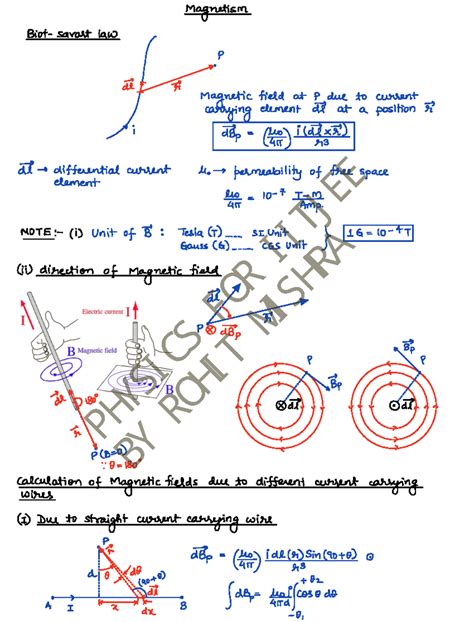 Magnetism
Biot-savart law
P
dl
r
i
Magnetic field at P due to current
carrying element dl at a position r
dBp = (μ₀/4π) i(dl×r)/r³
dl → differential current
element
μ₀ → permeability of free space
μ₀/4π = 10⁻⁷ T-m/Amp
NOTE:- (i) Unit of B : Tesla (T) ---- SI Unit
Gauss (G) ---- CGS Unit
1G = 10⁻⁴T
(ii) direction of Magnetic field
I
Electric current
I
B
Magnetic field
B
dl
180°
r
P (B=0)
∵ θ = 180
dl
P
⊗ dBp
r
P
Bp
⊗ dl
Bp
P
⊙ dl
PHYSICS FOR IITJEE
BY ROHIT MISHRA
Calculation of Magnetic fields due to different current carrying
wires
(I) Due to straight current carrying wire
P
r
d
θ
dθ
(90+θ)
dl
A
I
x
dx
B
dBp = (μ₀/4π) i dl (r) Sin(90+θ)/r³
∫dBp = μ₀i/4πd ∫ cosθ dθ
+θ₂
-θ₁